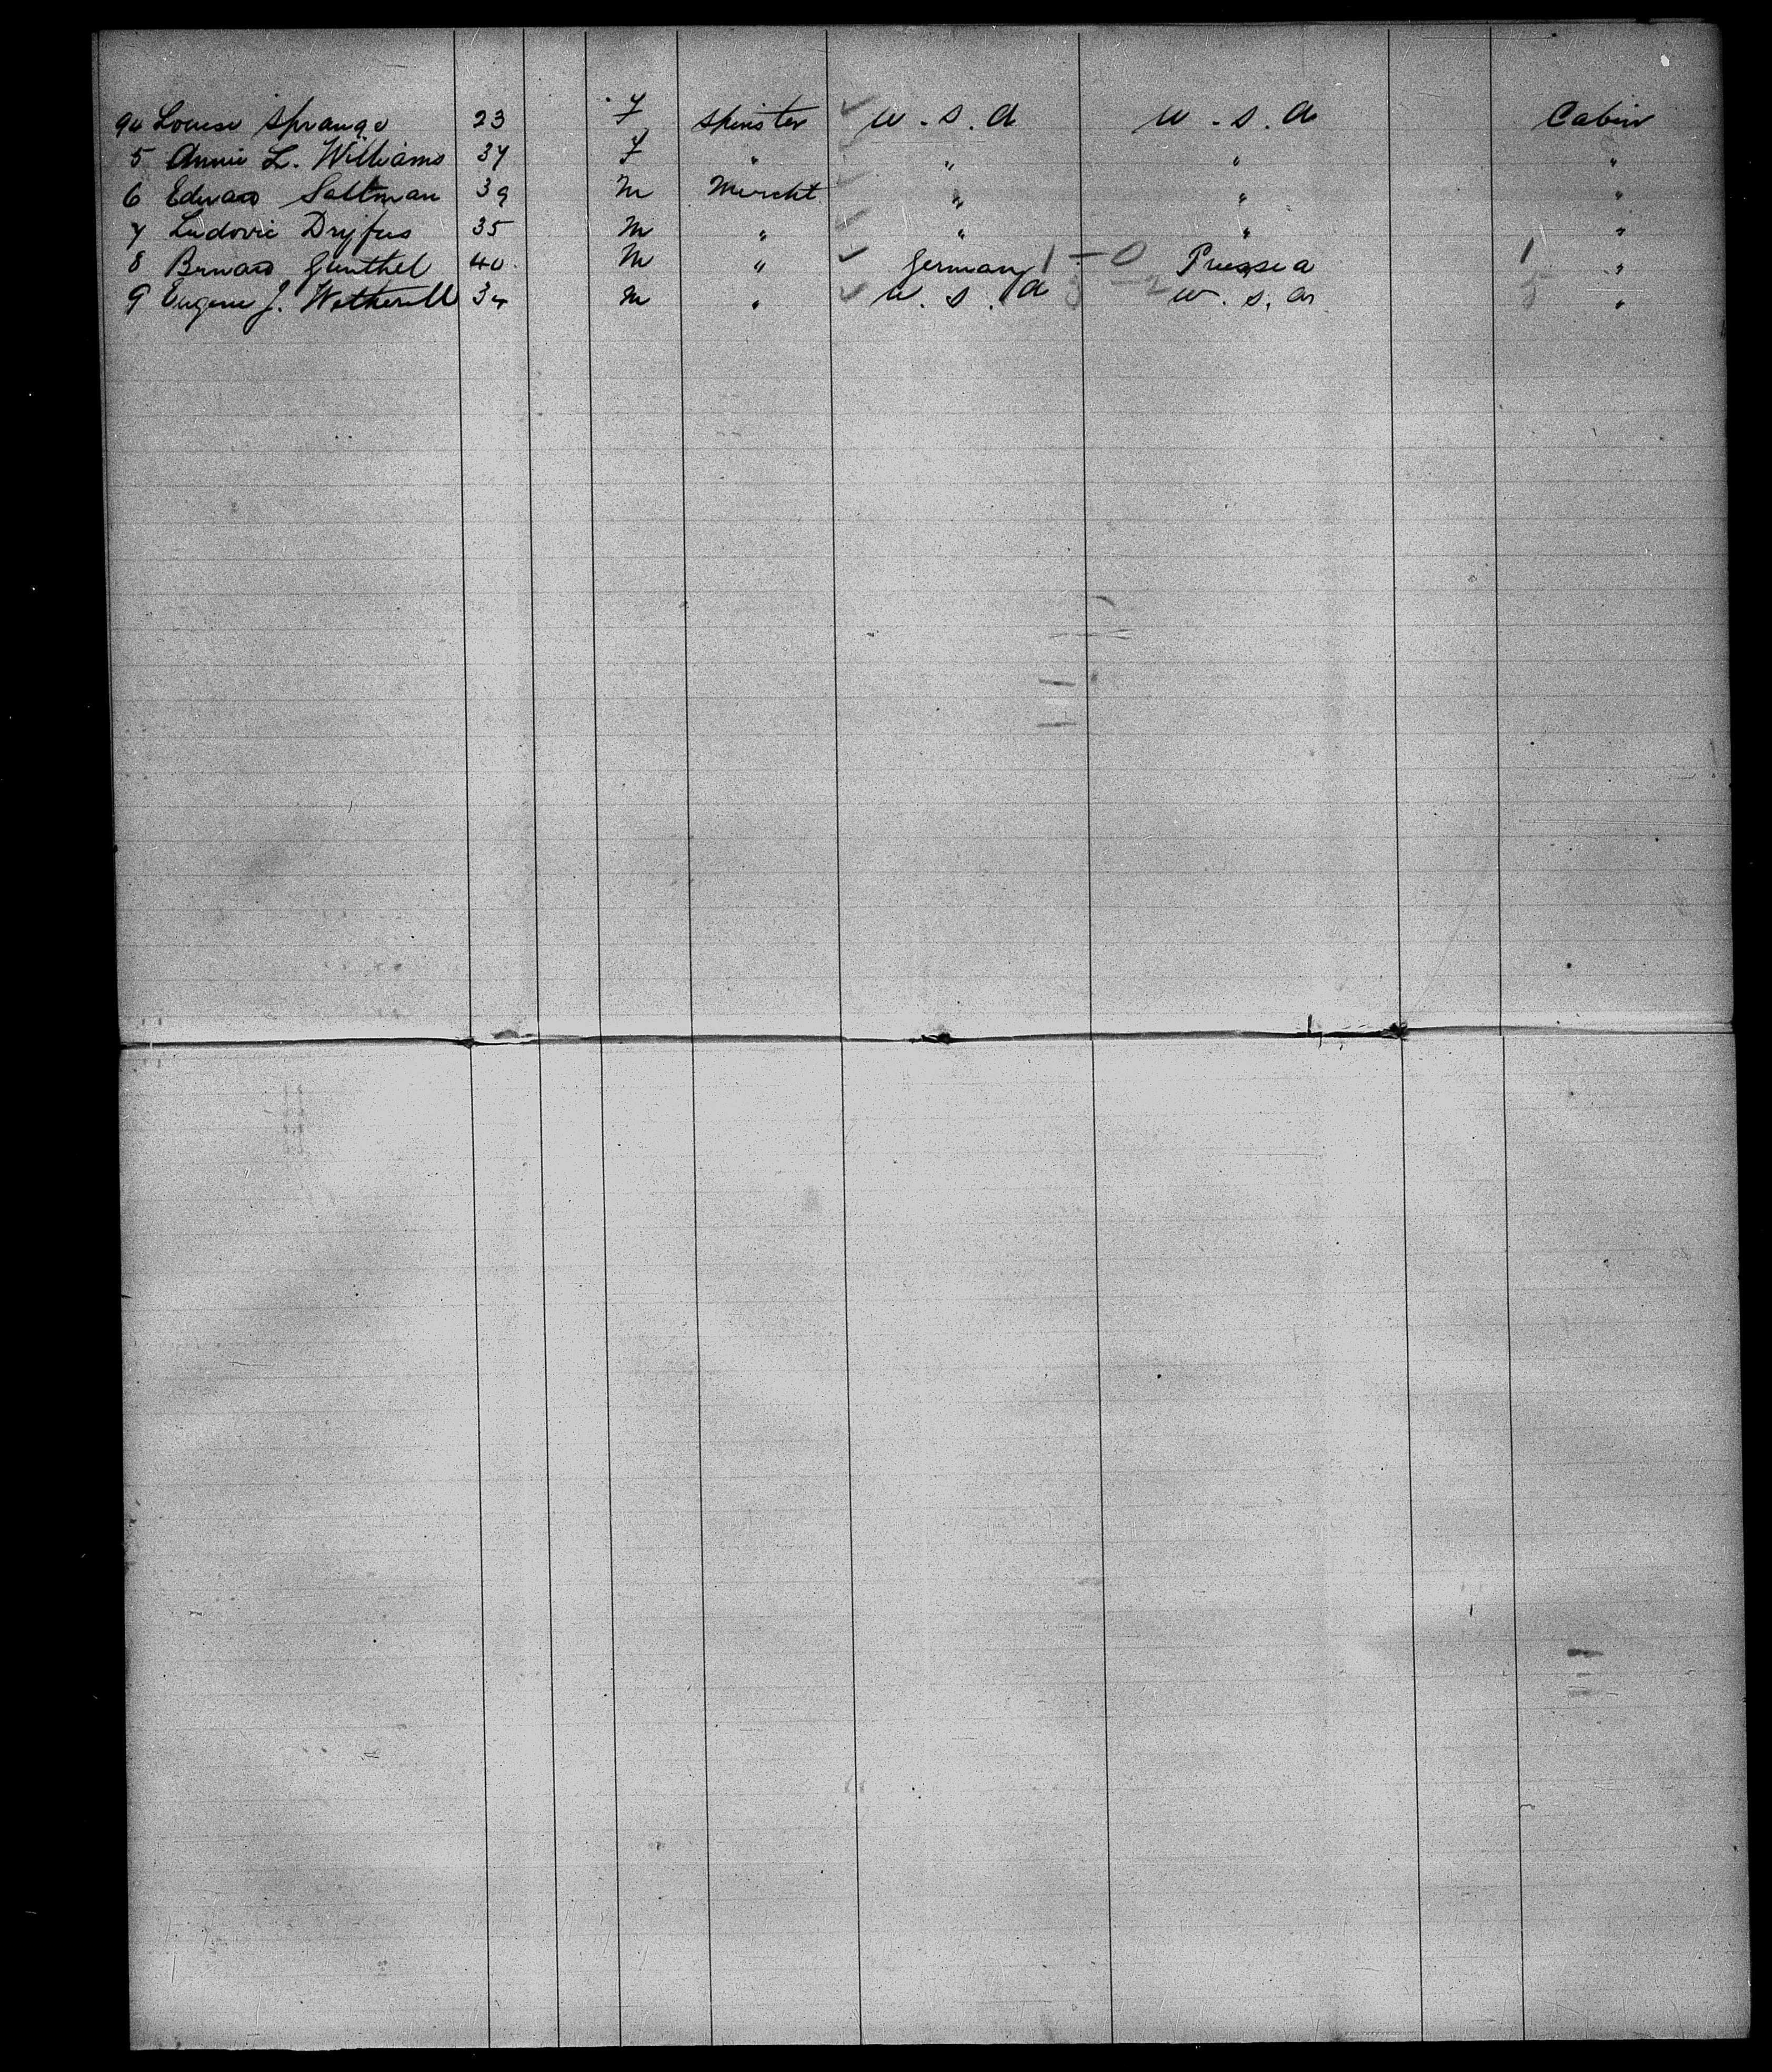 94 Louise Sprange 23 F Spinster ✓ U.S.A U.S.A Cabin
5 Annie L. Williams 37 F " ✓ " " "
6 Edward Saltman 39 M Mercht ✓ " " "
7 Ludovic Dryfus 35 M " ✓ " " "
8 Bernard Gunthel 40 M " ✓ Germany 1-0 Prussia 1 "
9 Eugene J. Wetherill 34 M " ✓ U.S.A -2 U.S.A 5 "